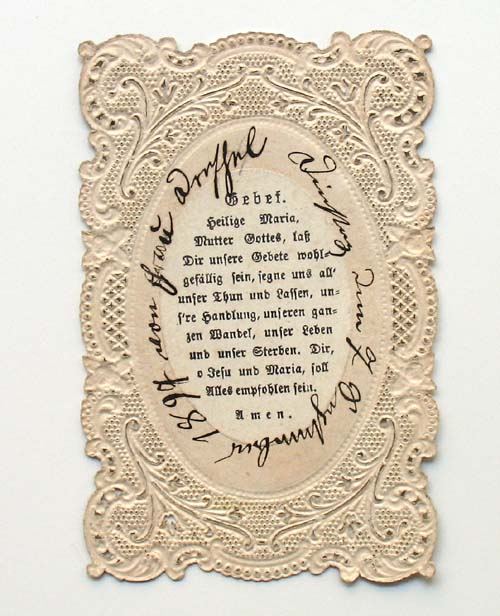 Gebet.
Heilige Maria,
Mutter Gottes, laß
Dir unsere Gebete wohl-
gefällig sein, segne uns all'
unser Thun und Lassen, un-
s're Handlung, unseren gan-
zen Wandel, unser Leben
und unser Sterben. Dir,
o Jesu und Maria, soll
Alles empfohlen sein.
Amen.
1894 von Frau